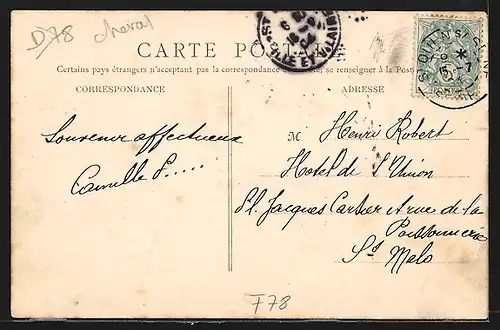 D78 cheval
CARTE POSTALE
Certains pays étrangers n'acceptant pas la correspondance se renseigner à la Poste
CORRESPONDANCE
ADRESSE
Souvenir affectueux
Camille P.....
M Henri Robert
Hotel de l'Union
Pl. Jacques Cartier A rue de la
Poissonnerie
St Malo
F78